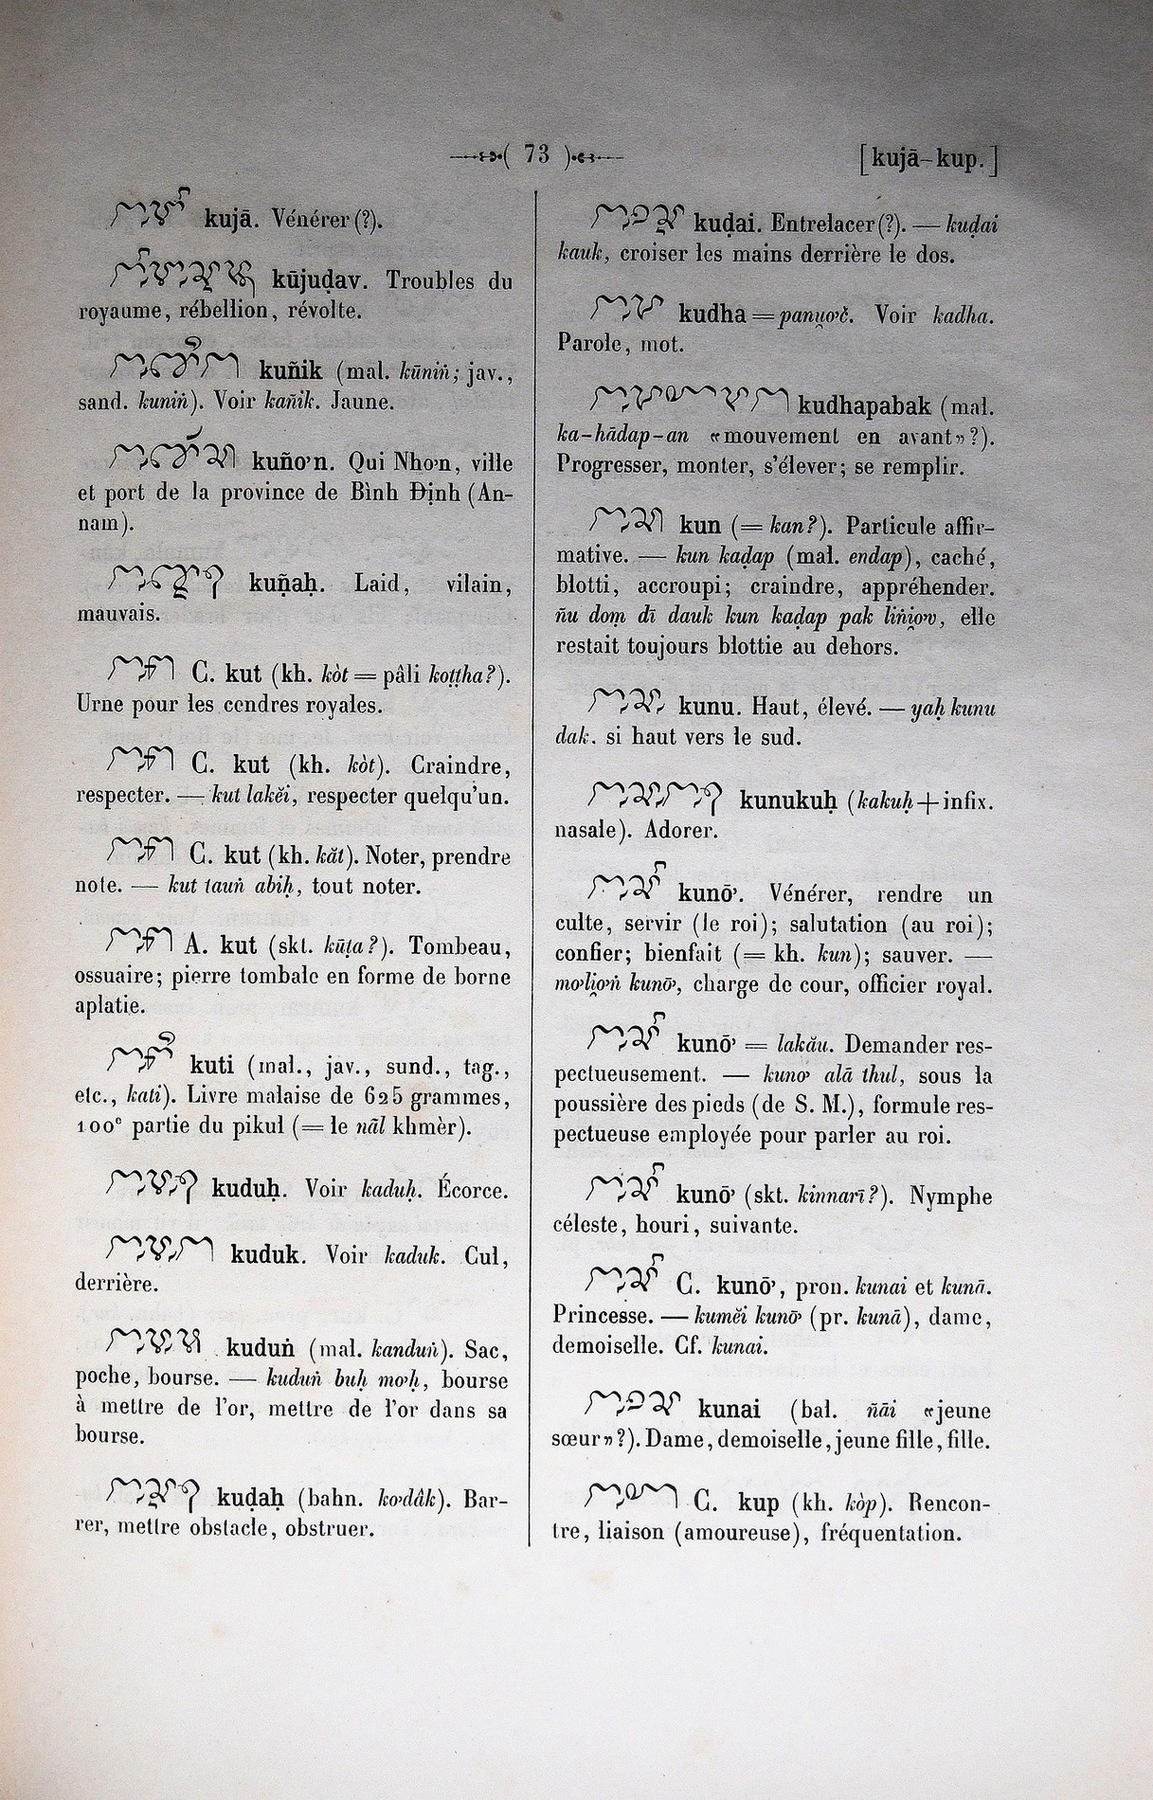 ( 73 )
[kujā-kup.]
kujā. Vénérer (?).
kūjuḍav. Troubles du
royaume, rébellion, révolte.
kuñik (mal. kūniṅ; jav.,
sand. kuniṅ). Voir kañik. Jaune.
kuño'n. Qui Nho'n, ville
et port de la province de Bình Định (An-
nam).
kuñaḥ. Laid, vilain,
mauvais.
C. kut (kh. kòt = pâli koṭṭha?).
Urne pour les cendres royales.
C. kut (kh. kòt). Craindre,
respecter. — kut lakĕi, respecter quelqu'un.
C. kut (kh. kăt). Noter, prendre
note. — kut tauṅ abiḥ, tout noter.
A. kut (skt. kūṭa?). Tombeau,
ossuaire; pierre tombale en forme de borne
aplatie.
kuti (mal., jav., sund., tag.,
etc., kati). Livre malaise de 625 grammes,
100e partie du pikul (= le nāl khmèr).
kuduḥ. Voir kaduḥ. Écorce.
kuduk. Voir kaduk. Cul,
derrière.
kuduṅ (mal. kanduṅ). Sac,
poche, bourse. — kuduṅ buḥ mo'ḥ, bourse
à mettre de l'or, mettre de l'or dans sa
bourse.
kuḍaḥ (bahn. ko'dâk). Bar-
rer, mettre obstacle, obstruer.
kuḍai. Entrelacer (?). — kuḍai
kauk, croiser les mains derrière le dos.
kudha = panṷo'č. Voir kadha.
Parole, mot.
kudhapabak (mal.
ka-hādap-an «mouvement en avant»?).
Progresser, monter, s'élever; se remplir.
kun (= kan?). Particule affir-
mative. — kun kaḍap (mal. endap), caché,
blotti, accroupi; craindre, appréhender.
ñu doṃ dī dauk kun kaḍap pak liṅi̯o'v, elle
restait toujours blottie au dehors.
kunu. Haut, élevé. — yaḥ kunu
dak. si haut vers le sud.
kunukuḥ (kakuḥ + infix.
nasale). Adorer.
kunō'. Vénérer, rendre un
culte, servir (le roi); salutation (au roi);
confier; bienfait (= kh. kun); sauver. —
mo'li̯o'ṅ kunō', charge de cour, officier royal.
kunō' = lakău. Demander res-
pectueusement. — kuno' alā thul, sous la
poussière des pieds (de S. M.), formule res-
pectueuse employée pour parler au roi.
kunō' (skt. kinnarī?). Nymphe
céleste, houri, suivante.
C. kunō', pron. kunai et kunā.
Princesse. — kumĕi kunō' (pr. kunā), dame,
demoiselle. Cf. kunai.
kunai (bal. ñāi «jeune
sœur»?). Dame, demoiselle, jeune fille, fille.
C. kup (kh. kòp). Rencon-
tre, liaison (amoureuse), fréquentation.